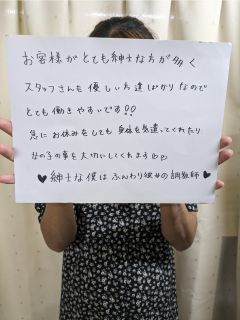 お客様がとても紳士な方が多く
スタッフさんも優しい方達ばかりなので
とても働きやすいです!!
急にお休みをしても身体を気遣ってくれたり
女の子の事を大切にしてくれます♡♡
♥紳士な僕はふんわり彼女の調教師♥